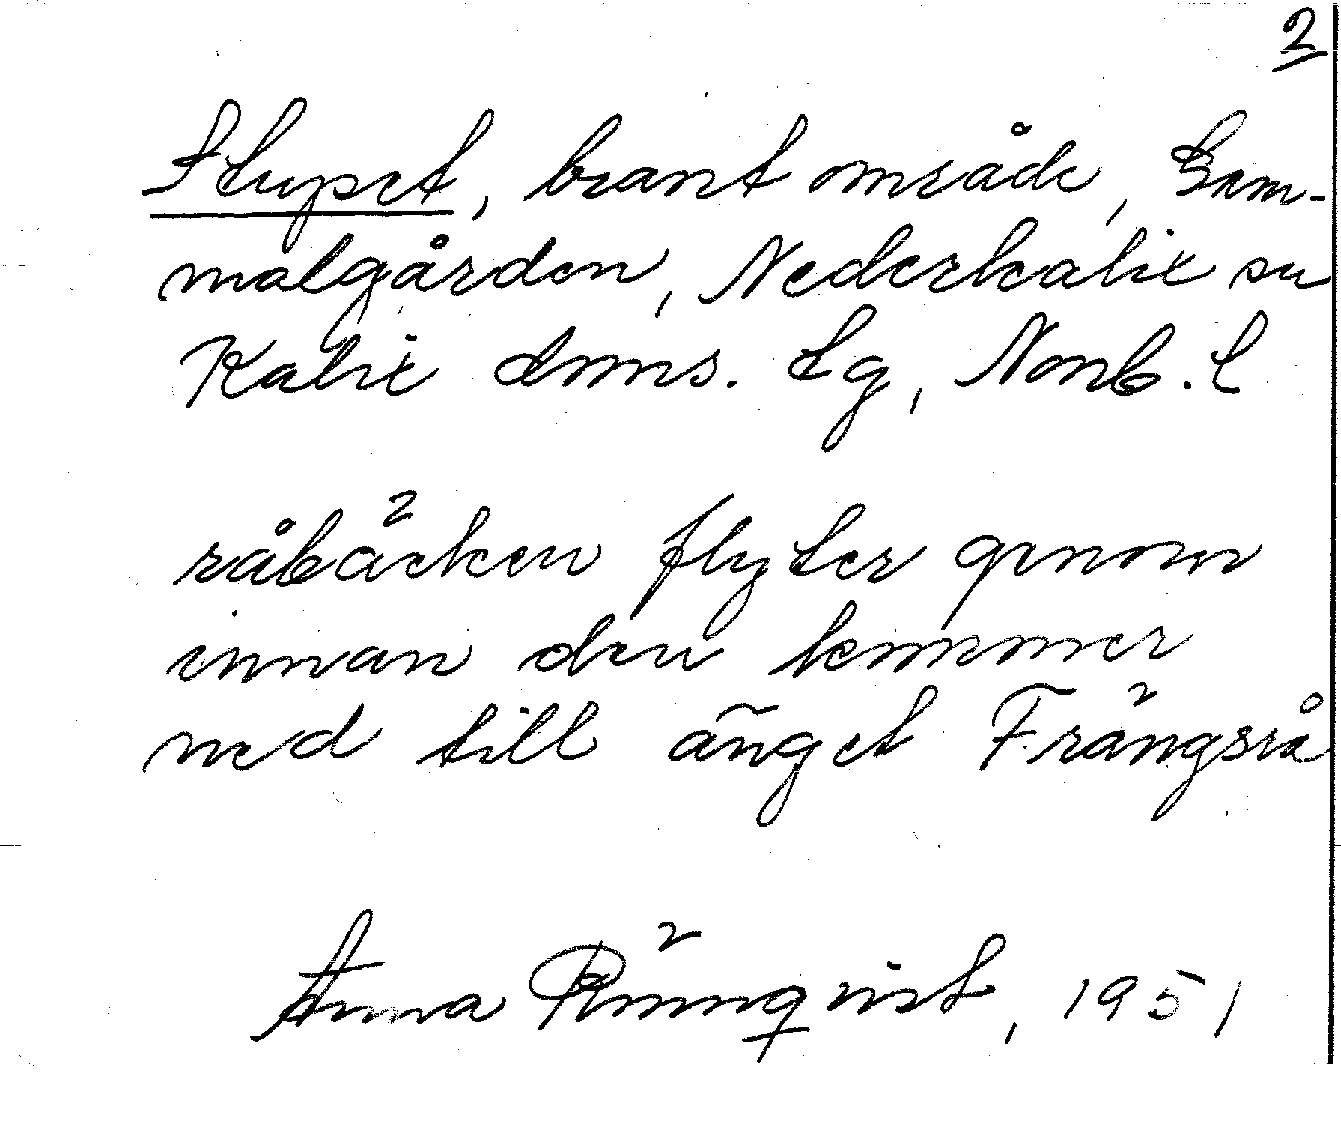 2
Stupet, brant område, Gam-
malgården, Nederkalix sn
Kalix doms. tg, Norrb. l
råbäcken flyter genom
innan den kommer
ned till änget Frängsrå
Anna Rönnqvist, 1951